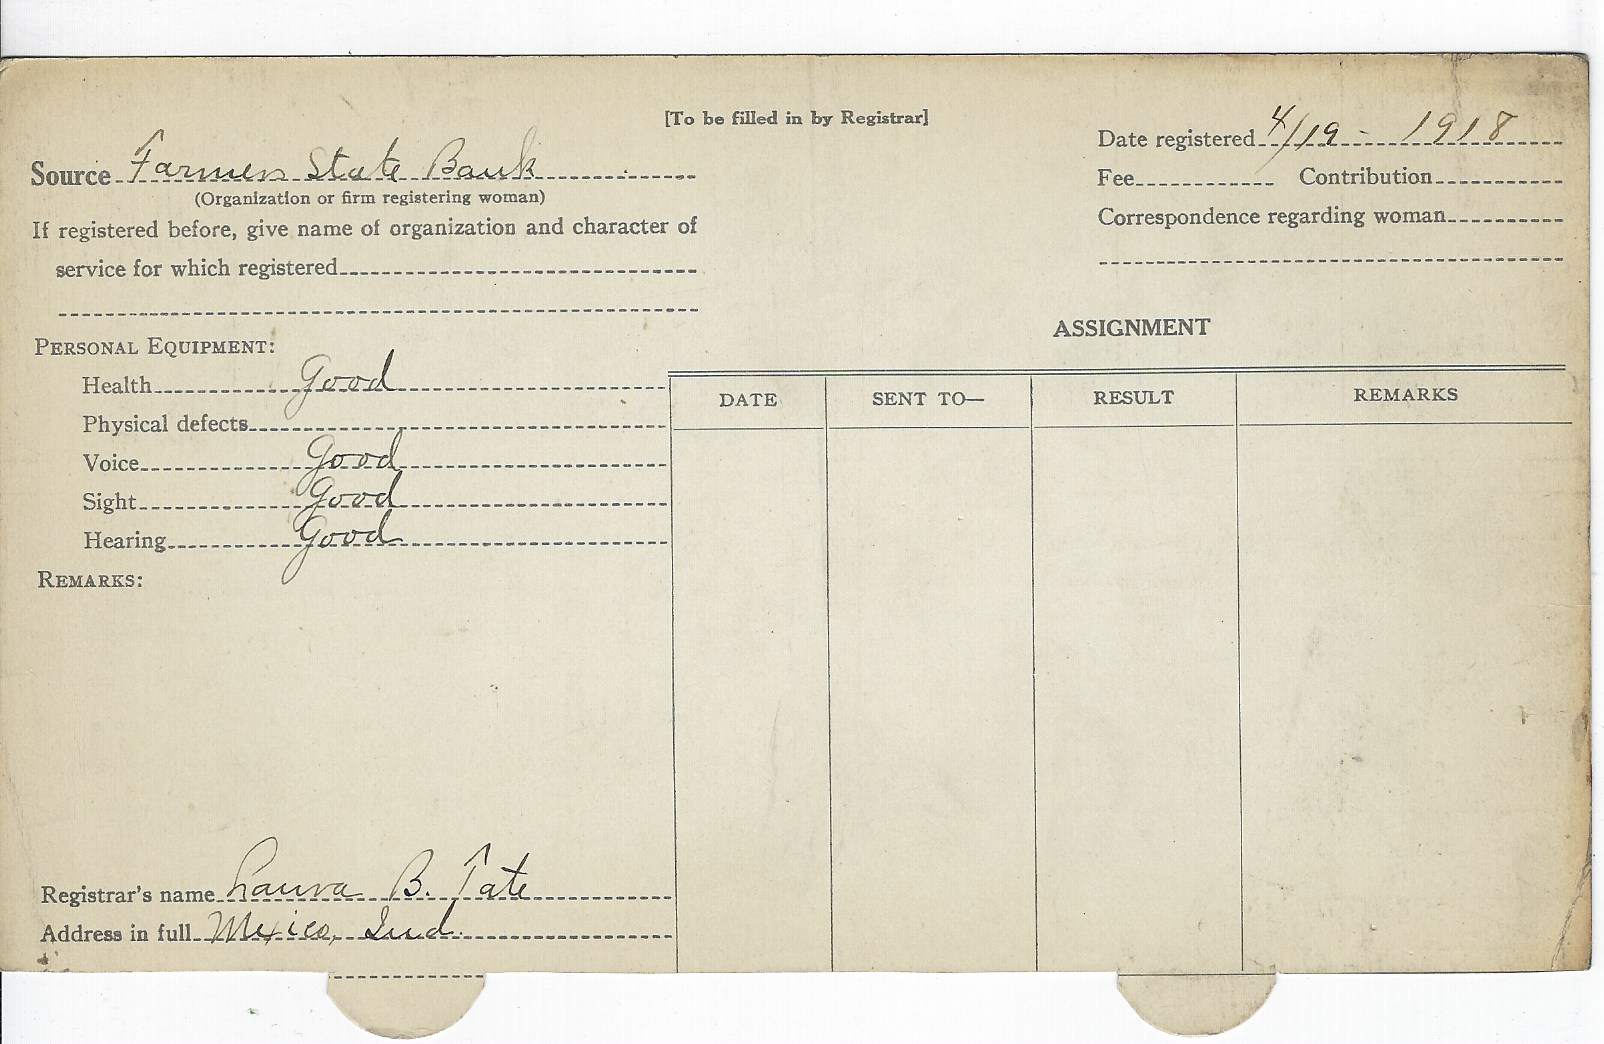 [To be filled in by Registrar]
Source Farmers State Bank
(Organization or firm registering woman)
If registered before, give name of organization and character of
service for which registered
Date registered 4/19 - 1918
Fee Contribution
Correspondence regarding woman
PERSONAL EQUIPMENT:
Health Good
Physical defects
Voice Good
Sight Good
Hearing Good
REMARKS:
ASSIGNMENT
DATE SENT TO— RESULT REMARKS
Registrar's name Laura B. Tate
Address in full Mexico, Ind.